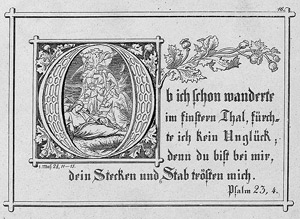 16.
Ob ich schon wanderte
im finstern Thal, fürch-
te ich kein Unglück,
denn du bist bei mir,
dein Stecken und Stab trösten mich.
Psalm 23, 4.